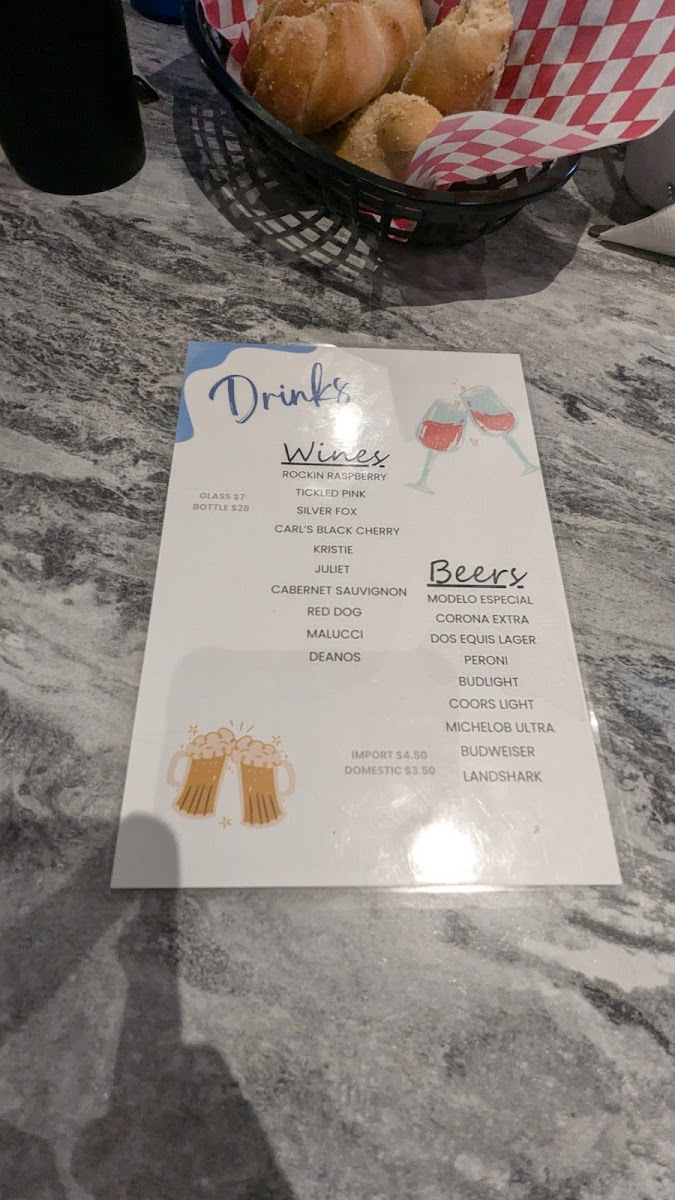 Drinks
Wines
ROCKIN RASPBERRY
TICKLED PINK
SILVER FOX
CARL'S BLACK CHERRY
KRISTIE
JULIET
CABERNET SAUVIGNON
RED DOG
MALUCCI
DEANOS
GLASS $7
BOTTLE $28
Beers
MODELO ESPECIAL
CORONA EXTRA
DOS EQUIS LAGER
PERONI
BUDLIGHT
COORS LIGHT
MICHELOB ULTRA
BUDWEISER
LANDSHARK
IMPORT $4.50
DOMESTIC $3.50